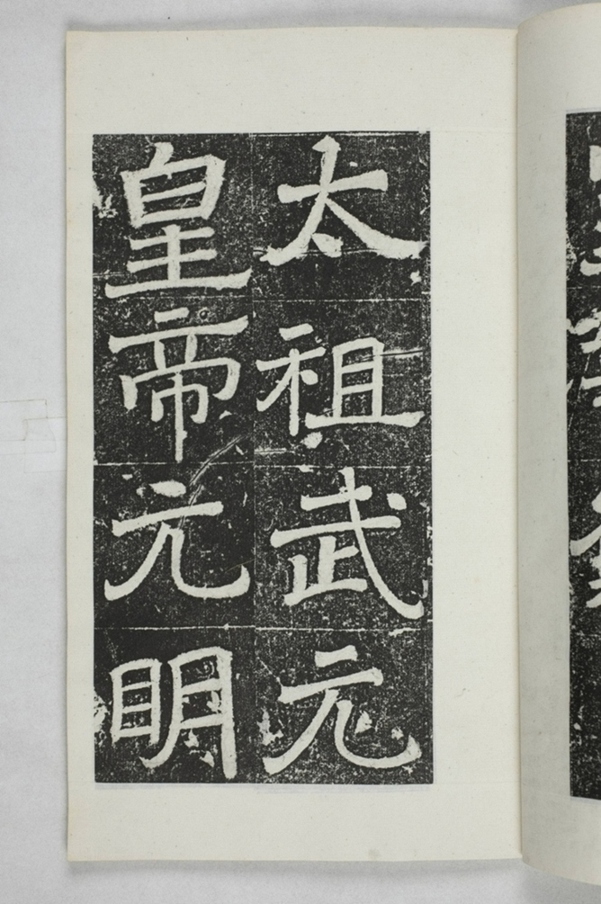 太祖武元
皇帝元明